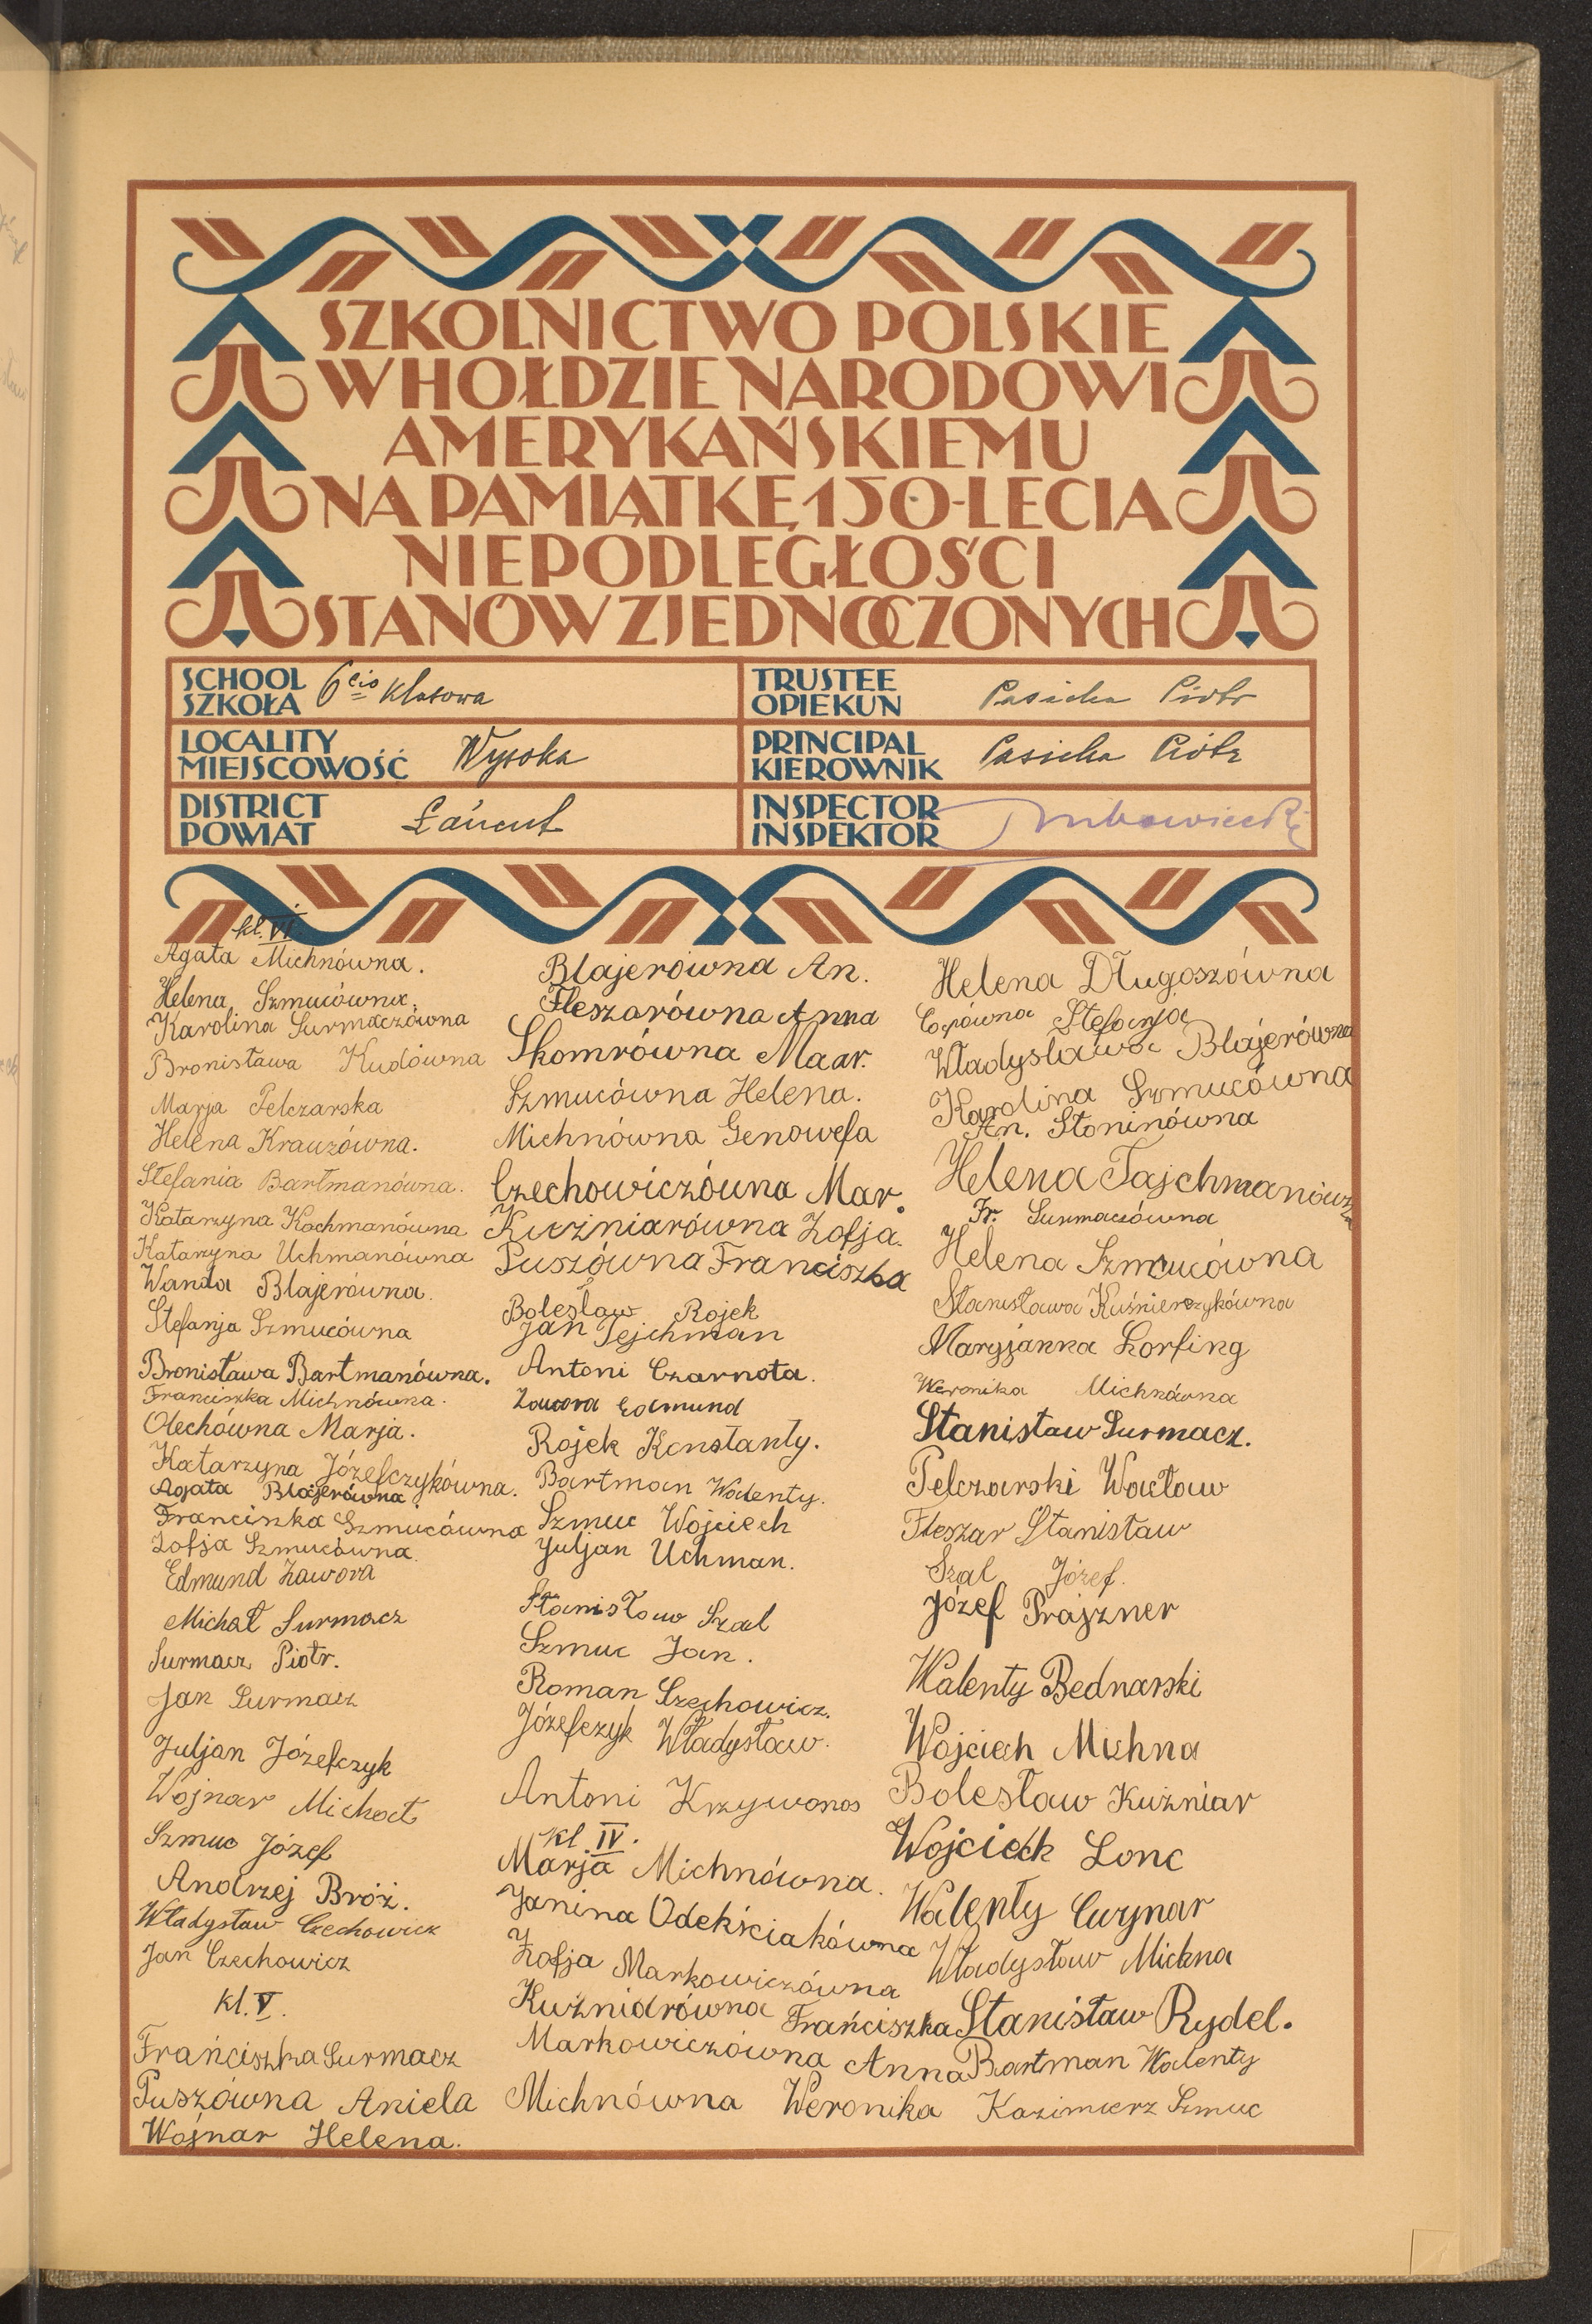 SZKOLNICTWO POLSKIE
W HOŁDZIE NARODOWI
AMERYKAŃSKIEMU
NA PAMIĄTKĘ 150-LECIA
NIEPODLEGŁOŚCI
STANÓW ZJEDNOCZONYCH
SCHOOL
SZKOŁA
6cio klasowa
TRUSTEE
OPIEKUN
Pasicka Piotr
LOCALITY
MIEJSCOWOŚĆ
Wysoka
PRINCIPAL
KIEROWNIK
Pasicka Piotr
DISTRICT
POWIAT
Łańcut
INSPECTOR
INSPEKTOR
kl. VI.
Agata Michnówna.
Helena Szmucówna.
Karolina Surmaczówna
Bronisława Kudówna
Marja Pelczarska
Helena Krauzówna.
Stefania Bartmanówna.
Katarzyna Kochmanówna
Katarzyna Uchmanówna
Wanda Blajerówna.
Stefanja Szmucówna
Bronisława Bartmanówna.
Franciszka Michnówna.
Olechówna Marja.
Katarzyna Józefczykówna.
Agata Blajerówna
Franciszka Szmucówna
Zofja Szmucówna.
Edmund Zawora
Michał Surmacz
Surmacz Piotr.
Jan Surmacz
Juljan Józefczyk
Wojnar Michał
Szmuc Józef
Andrzej Bróź.
Władysław Czechowicz
Jan Czechowicz
kl. V.
Frańciszka Surmacz
Puszówna Aniela
Wojnar Helena.
Blajerówna An.
Fleszarówna Anna
Skomrówna Maar.
Szmucówna Helena.
Michnówna Genowefa
Czechowiczówna Mar.
Kuźniarówna Zofja.
Puszówna Franciszka
Bolesław Rojek
Jan Tejchman
Antoni Czarnota.
Zawora Edmund
Rojek Konstanty.
Bartman Walenty.
Szmuc Wojciech
Juljan Uchman.
Stanisław Szal
Szmuc Jan.
Roman Czechowicz.
Józefczyk Władysław.
Antoni Krzywonos
kl. IV.
Marja Michnówna.
Janina Odekściakówna
Zofja Markowiczówna
Kuźniarówna Frańciszka
Markowiczówna Anna
Michnówna Weronika
Helena Długoszówna
Stefanja
Władysława Blajerówna
Karolina Szmucówna
An. Słoninówna
Helena Tajchmanówna
Fr. Surmaczówna
Helena Szmucówna
Stanisława Kuśnierzykówna
Maryjanna Lorfing
Weronika Michnówna
Stanisław Surmacz.
Pelczarski Wacław
Fleszar Stanisław
Szal Józef.
Józef Prajzner
Walenty Bednarski
Wojciech Michna
Bolesław Kuźniar
Wojciech Lonc
Walenty Cwynar
Władysław Michna
Stanisław Rydel.
Bartman Walenty
Kazimierz Szmuc